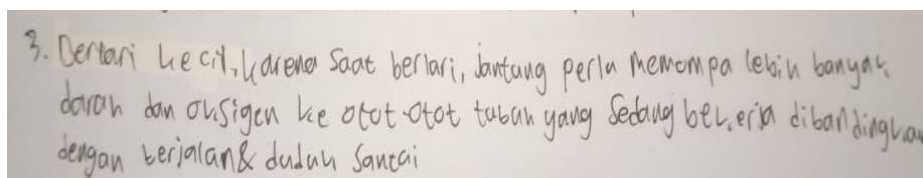 3. Berlari kecil, karena saat berlari, jantung perlu memompa lebih banyak
darah dan oksigen ke otot-otot tubuh yang sedang bekerja dibandingkan
dengan berjalan & duduk santai